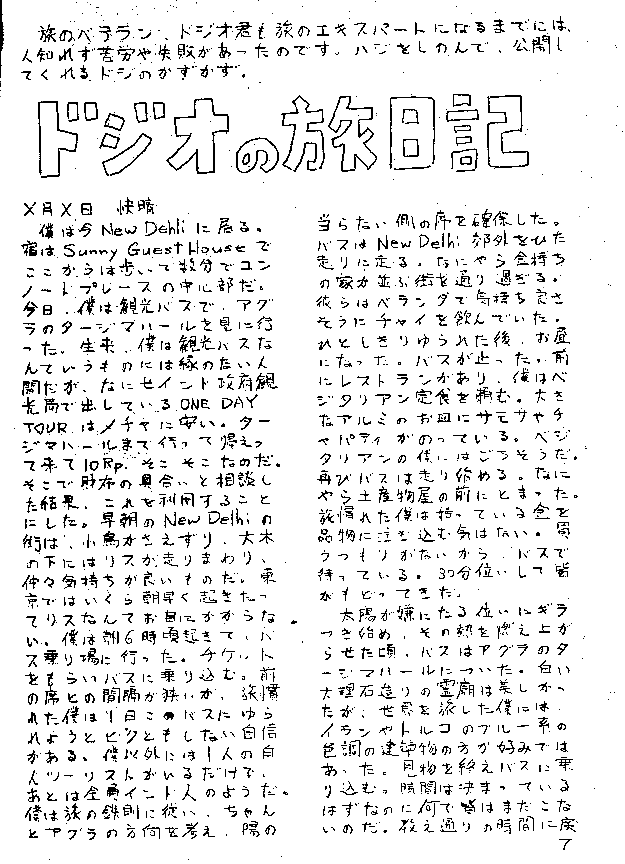 旅のベテラン、ドジオ君も旅のエキスパートになるまでには、
人知れず苦労や失敗があったのです。ハジをしのんで、公開し
てくれるドジのかずかず。
ドジオの旅日記
X月X日　快晴
僕は今New Dehliに居る。
宿はSunny Guest Houseで
ここからは歩いて数分でコン
ノートプレースの中心部だ。
今日、僕は観光バスで、アグ
ラのタージマハールを見に行
った。生来、僕は観光バスな
んていうものには縁のない人
間だが、なにセインド政府観
光局で出しているONE DAY
TOURはメチャに安い。ター
ジマハールまで行って帰えっ
て来て10Rp.そこそこなのだ。
そこで財布の具合いと相談し
た結果、これを利用すること
にした。早朝のNew Delhiの
街は、小鳥がさえずり、大木
の下にはリスが走りまわり、
仲々気持ちが良いものだ。東
京ではいくら朝早く起きたっ
てリスなんてお目にかからな
い。僕は朝6時頃起きて、バ
ス乗り場に行った。チケット
をもらいバスに乗り込む。前
の席との間隔が狭いが、旅慣
れた僕は1日このバスにゆら
れようとビクともしない自信
がある。僕以外には1人の白
人ツーリストがいるだけで、
あとは全員インド人のようだ。
僕は旅の鉄則に従い、ちゃん
とアグラの方向を考え、陽の
当らない側の席を確保した。
バスはNew Delhi郊外をひた
走りに走る。なにやら金持ち
の家が並ぶ街を通り過ぎる。
彼らはベランダで気持ち良さ
そうにチャイを飲んでいた。
ひとしきりゆられた後、お昼
になった。バスが止った。前
にレストランがあり、僕はベ
ジタリアン定食を頼む。大き
なアルミのお皿にサモサやチ
ャパティがのっている。ベジ
タリアンの僕にはごちそうだ。
再びバスは走り始める。なに
やら土産物屋の前にとまった。
旅慣れた僕は持っている金を
品物に注ぎ込む気はない。買
うつもりがないから、バスで
待っている。30分位いして皆
がもどってきた。
太陽が嫌になる位いにギラ
つき始め、その熱を燃え上が
らせた頃、バスはアグラのタ
ージマハールについた。白い
大理石造りの霊廟は美しかっ
たが、世界を旅した僕には、
イランやトルコのブルー系の
色調の建築物の方が好みでは
あった。見物を終えバスに乗
り込む。時間は決まっている
はずなのに何で皆はまだこな
いのだ。教え通りの時間に戻
7